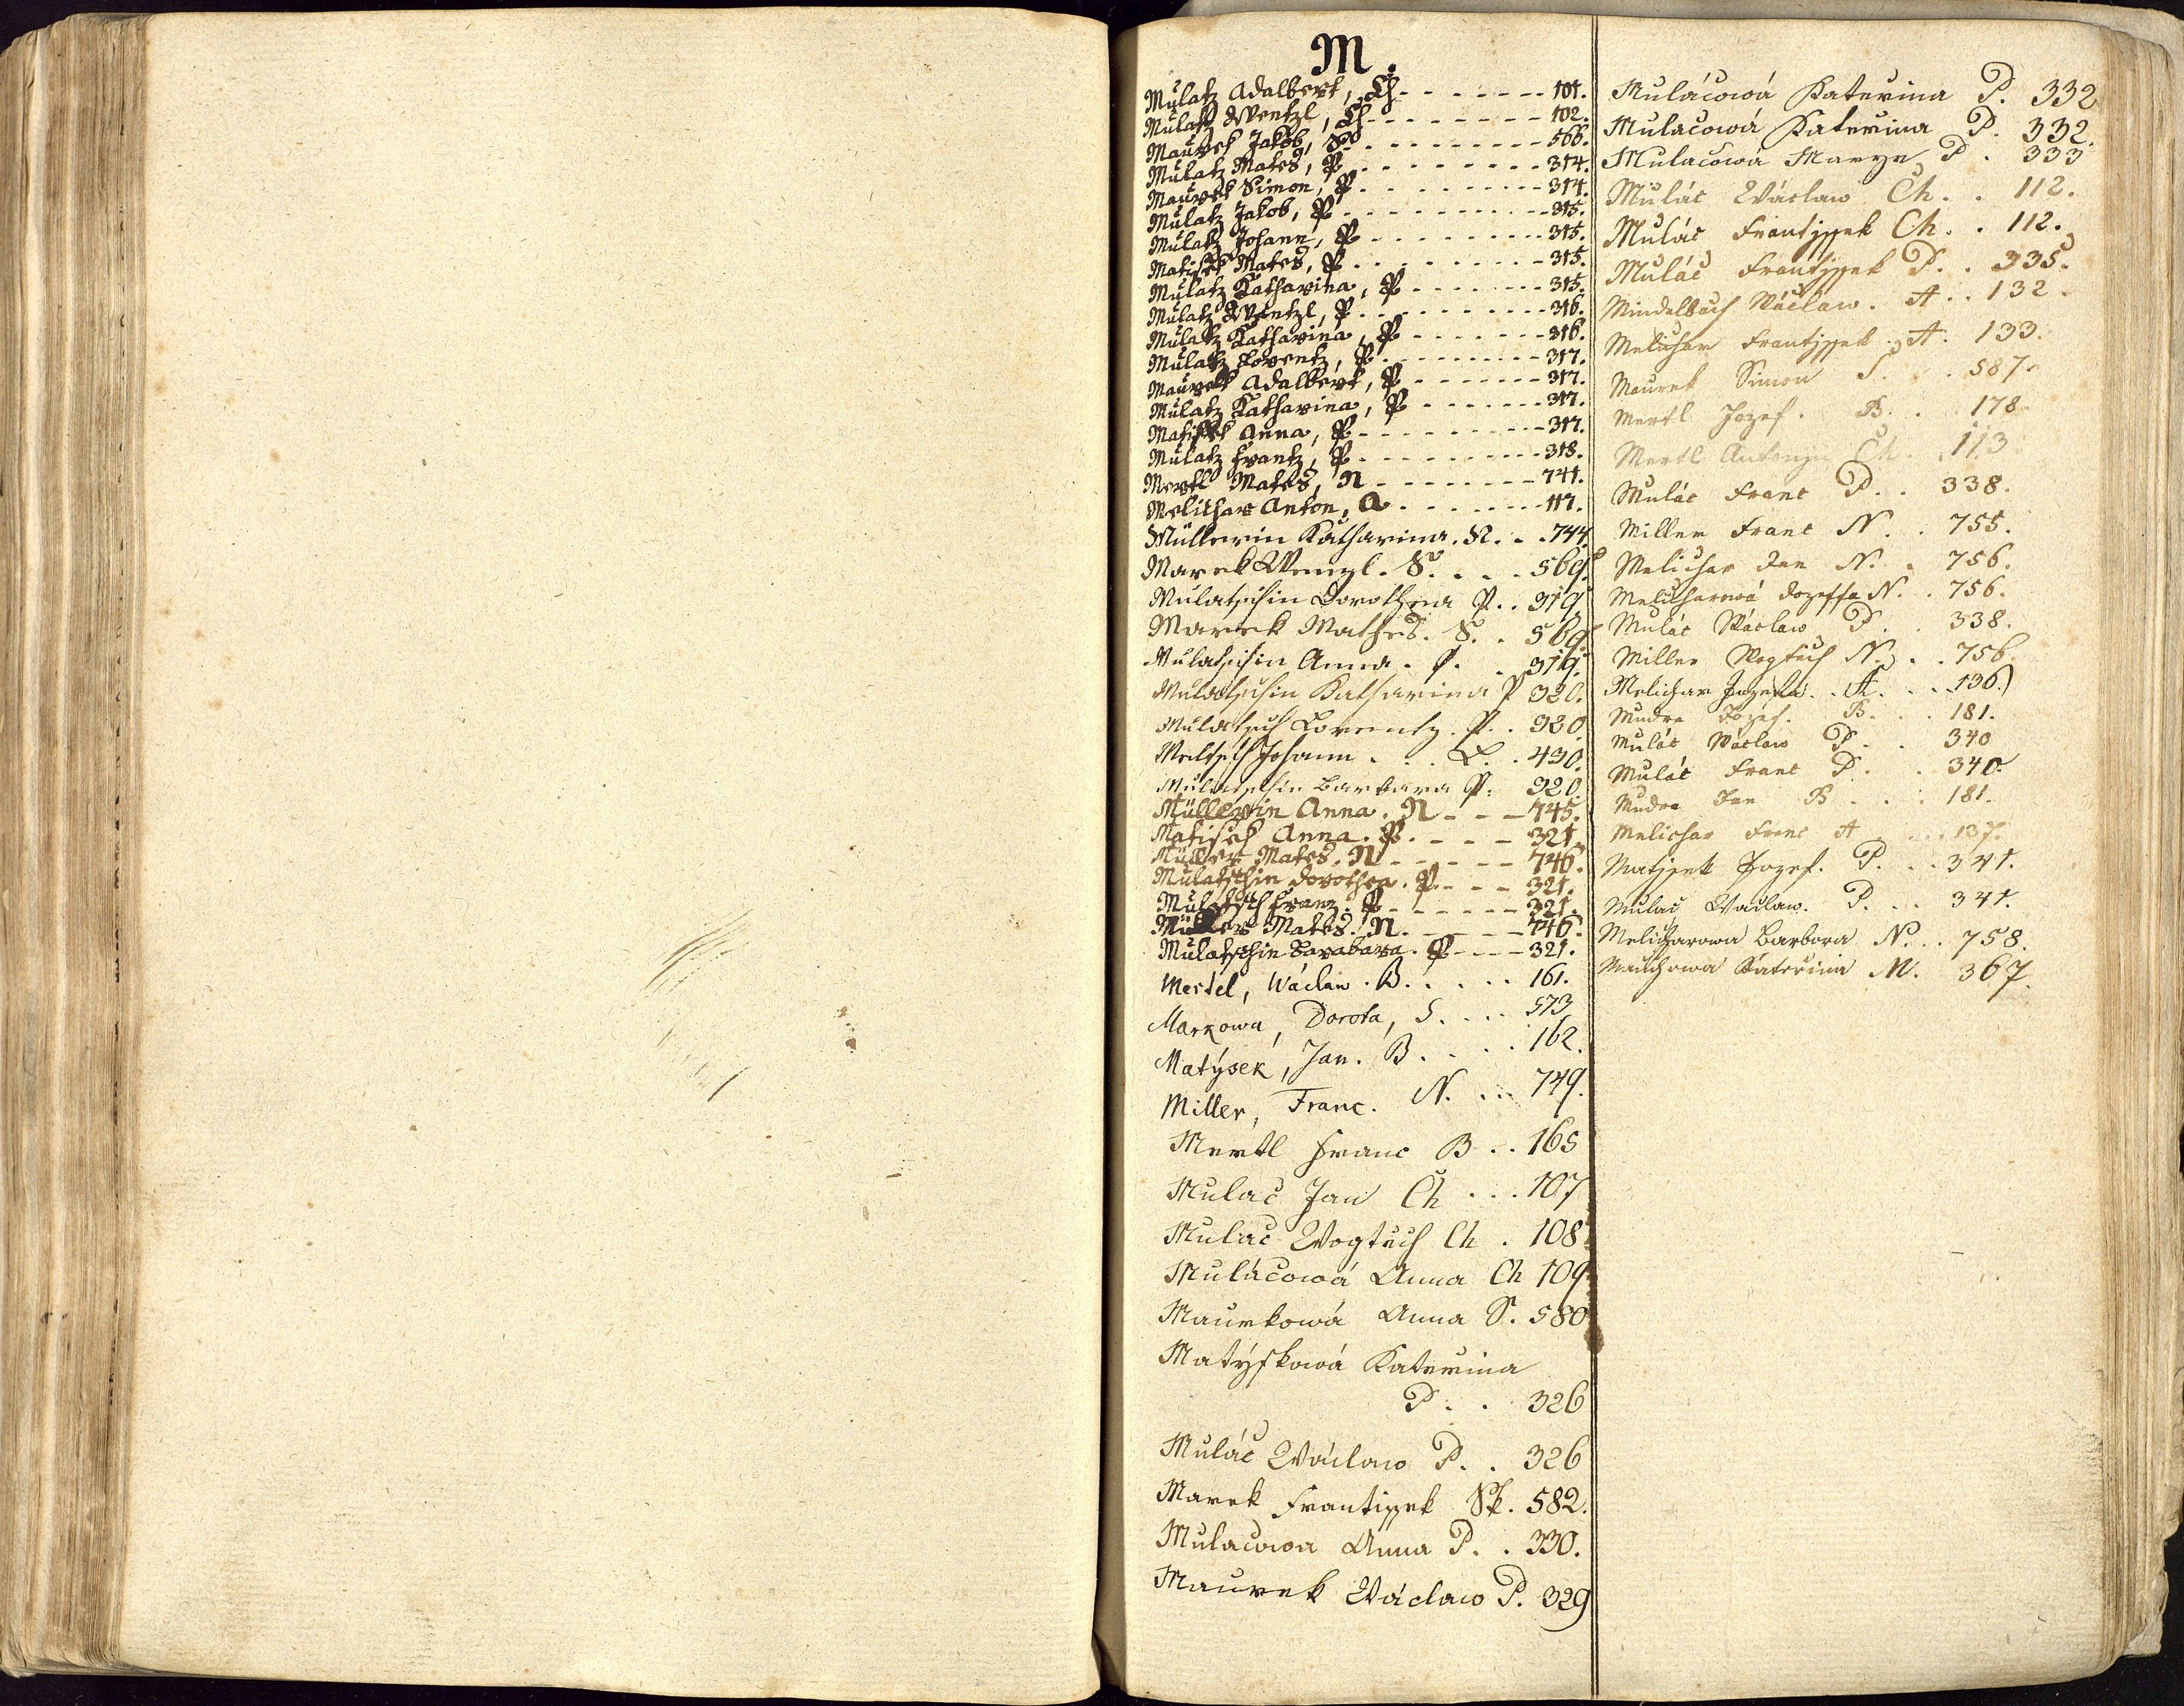 M.
Mulatz Adalbert, Ch - - - - - - - 101.
Mulatz Wentzl, Ch - - - - - - - - 102.
Maurek Jakob, S. - - - - - - - - - 566.
Mulatz Mates, P - - - - - - - - - 314.
Maurek Simon, P. - - - - - - - - - 314.
Mulatz Jakob, P - - - - - - - - - - 315.
Mulatz Johann, P - - - - - - - - - 315.
Matisek Mates, P - - - - - - - - - 315.
Mulatz Katharina, P - - - - - - - 315.
Mulatz Wentzl, P - - - - - - - - - 316.
Mulatz Katharina, P - - - - - - - 316.
Mulatz Lorentz, P - - - - - - - - - 317.
Maurek Adalbert, P - - - - - - - 317.
Mulatz Katharina, P - - - - - - - 317.
Matisek Anna, P - - - - - - - - - 317.
Mulatz Frantz, P - - - - - - - - - 318.
Mertl Mates, N - - - - - - - - 741.
Melichar Anton, A - - - - - - - 117.
Müllerin Katharina. N. . . 744
Marek Wenzl. S. . . . 569.
Mulatschin Dorothea P. . 319
Marek Mathes. S. . 569
Mulatschin Anna. P. . 319.
Mulatschin Katharina P 320.
Mulatsch Lorentz. P. . 320.
Johann . . . L. . 430.
Mulatschin Barbara P. 320.
Müllerin Anna. N - - - 745.
Matisek Anna. P. - - - - 321.
Müller Mates. N - - - - - 746.
Mulatschin Dorothea. P. - - - 321.
Mulatsch Franz. P - - - - - - 321.
Müller Mates. N. - - - - - 746.
Mulatschin Barabara. P - - - - 321.
Mertel, Wáclaw. B. . . . . 161.
Markowa, Dorota, S. . . . 573
Matýsek, Jan. B. . . . 162.
Miller, Franc. N. . . . 749.
Mertl Franc B . . 165
Mulač Jan Ch . . . 107
Mulač Wogtěch Ch . 108.
Muláčowá Anna Ch 109.
Maurkowá Anna S. 580
Matýskowá Kateřina
P. . . 326
Muláč Wáclaw P. . 326
Marek Frantissek Sk. 582.
Mulacowa Anna P. . 330.
Maurek Wáclaw P. 329
Muláčowá Kateřina P. 332
Mulačowá Kateřina P. 332.
Mulačowá Marye P . 333
Muláč Wáclaw Ch. . 112.
Muláč Frantjssek Ch. . 112.
Muláč Frantjssek P. . 335.
Mindelbach Wáclaw. A . . 132.
Melichar Frantjssek. A. 133.
Maurek Simon S. . . 587.
Mertl Jozef. B. . 178
Mertl Antonjn Ch . . 113
Muláč Franc P. . 338.
Miller Franc N. . 755.
Melichar Jan N. . 756.
Melicharowá Jozeffa N. . 756.
Muláč Wáclaw P. . 338.
Miller Wogtěch N. . . 756
Melichar Jozefa. . A. . . . 136.
Mudra Jozef. B. . . 181.
Muláč Wáclaw P. . 340
Muláč Franc P. . . 340.
Mudra Jan B . . . 181.
Melichar Franc A . . . . 137.
Matjsek Jozef. P. . . 341.
Mulač Waclaw. P. . . 341.
Melicharowa Barbora N. . . 758.
Kateřina M. 367.